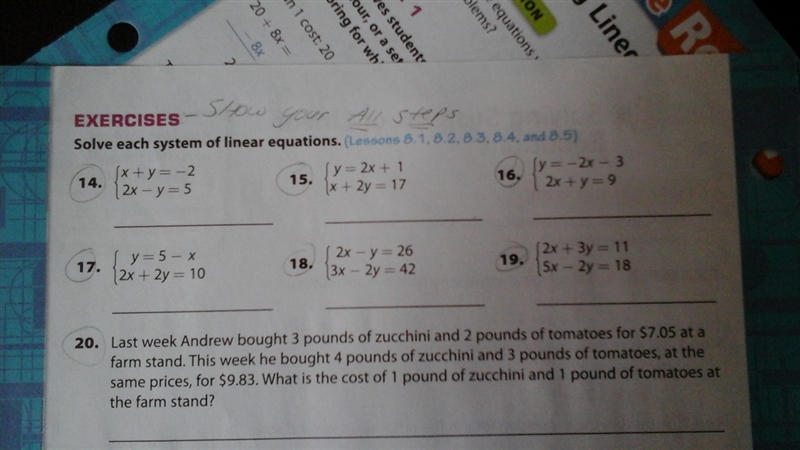 ION
g Linea
e Re
equations
oblems?
1
ves students
our, or a set
oring for wh
n 1 cost: 20
20 + 8x =
− 8x
2
EXERCISES – Show your All steps
Solve each system of linear equations. (Lessons 8.1, 8.2, 8.3, 8.4, and 8.5)
14. { x + y = −2
2x − y = 5
15. { y = 2x + 1
x + 2y = 17
16. { y = −2x − 3
2x + y = 9
17. { y = 5 − x
2x + 2y = 10
18. { 2x − y = 26
3x − 2y = 42
19. { 2x + 3y = 11
5x − 2y = 18
20. Last week Andrew bought 3 pounds of zucchini and 2 pounds of tomatoes for $7.05 at a
farm stand. This week he bought 4 pounds of zucchini and 3 pounds of tomatoes, at the
same prices, for $9.83. What is the cost of 1 pound of zucchini and 1 pound of tomatoes at
the farm stand?